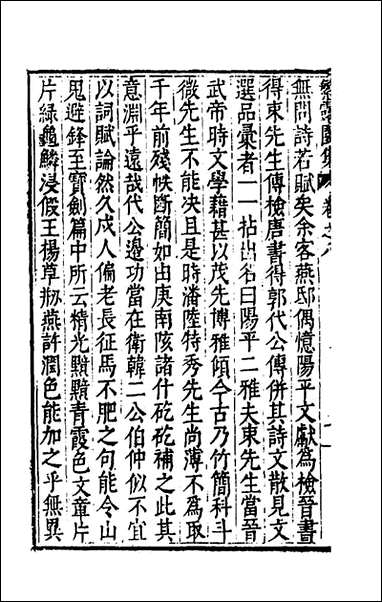 無問詩若賦矣余客燕邸偶憶陽平文獻為檢晉書
得束先生傳檢唐書得郭代公傳併其詩文散見文
選品彙者一一拈出名曰陽平二雅夫束先生當晉
武帝時文學藉甚以茂先博雅傾今古乃竹簡科斗
微先生不能决且是時潘陸特秀先生尚薄不為取
千年前殘帙斷簡如由庚南陔諸什矻矻補之此其
意淵乎遠哉代公邊功當在衛韓二公伯仲似不宜
以詞賦論然久戍人偏老長征馬不肥之句能令山
鬼避鋒至寶劍篇中所云精光黯黯青霞色文章片
片綠龜鱗浸假王楊草剏燕許潤色能加之乎無異